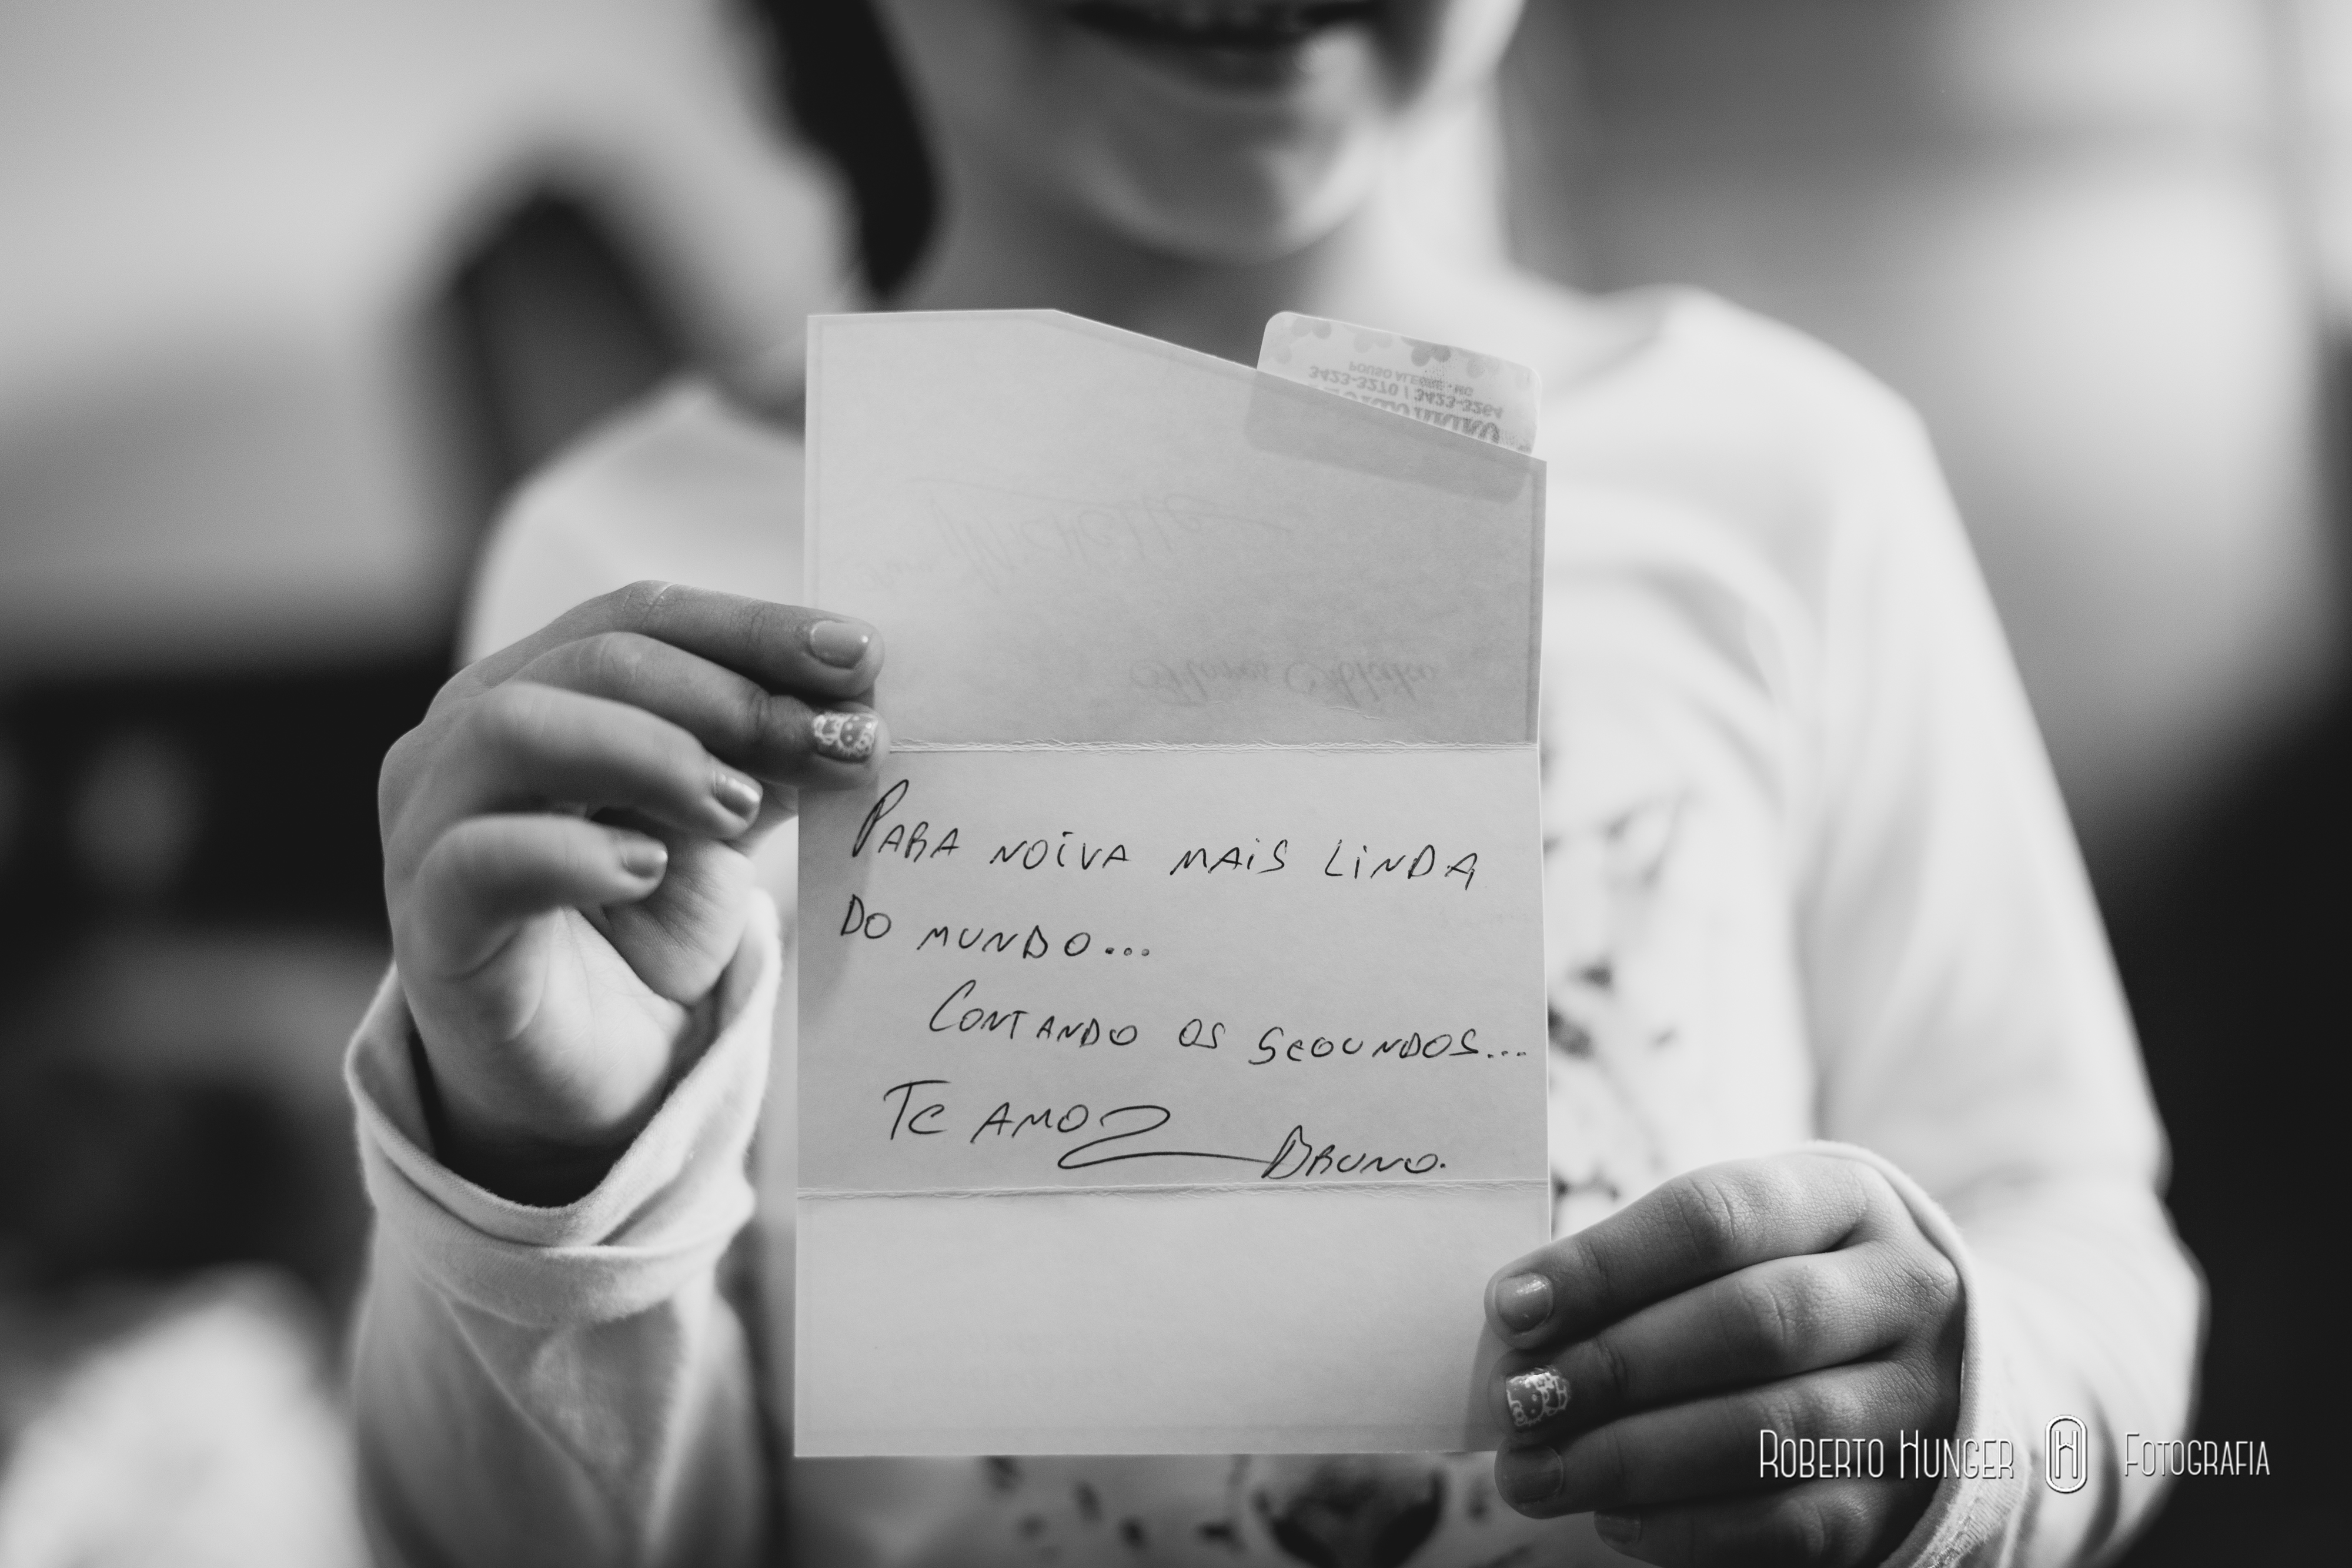 POUSO ALEGRE - MG
3423-3270 / 3423-3264
Michelle
PARA NOIVA MAIS LINDA
DO MUNDO...
CONTANDO OS SEGUNDOS...
TE AMO
BRUNO.
ROBERTO HUNGER H FOTOGRAFIA